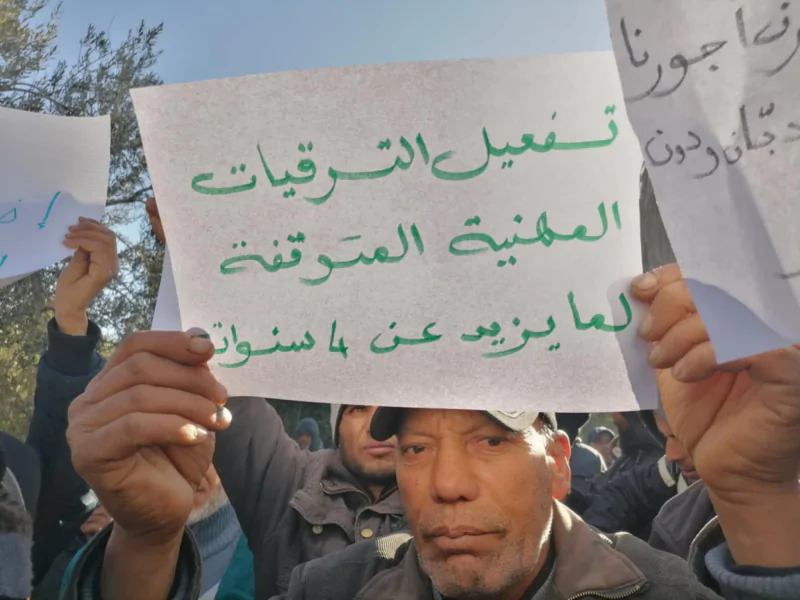 تفعيل الترقيات
المهنية المتوقفة
لما يزيد عن 4 سنوات
اجورنا
ودون